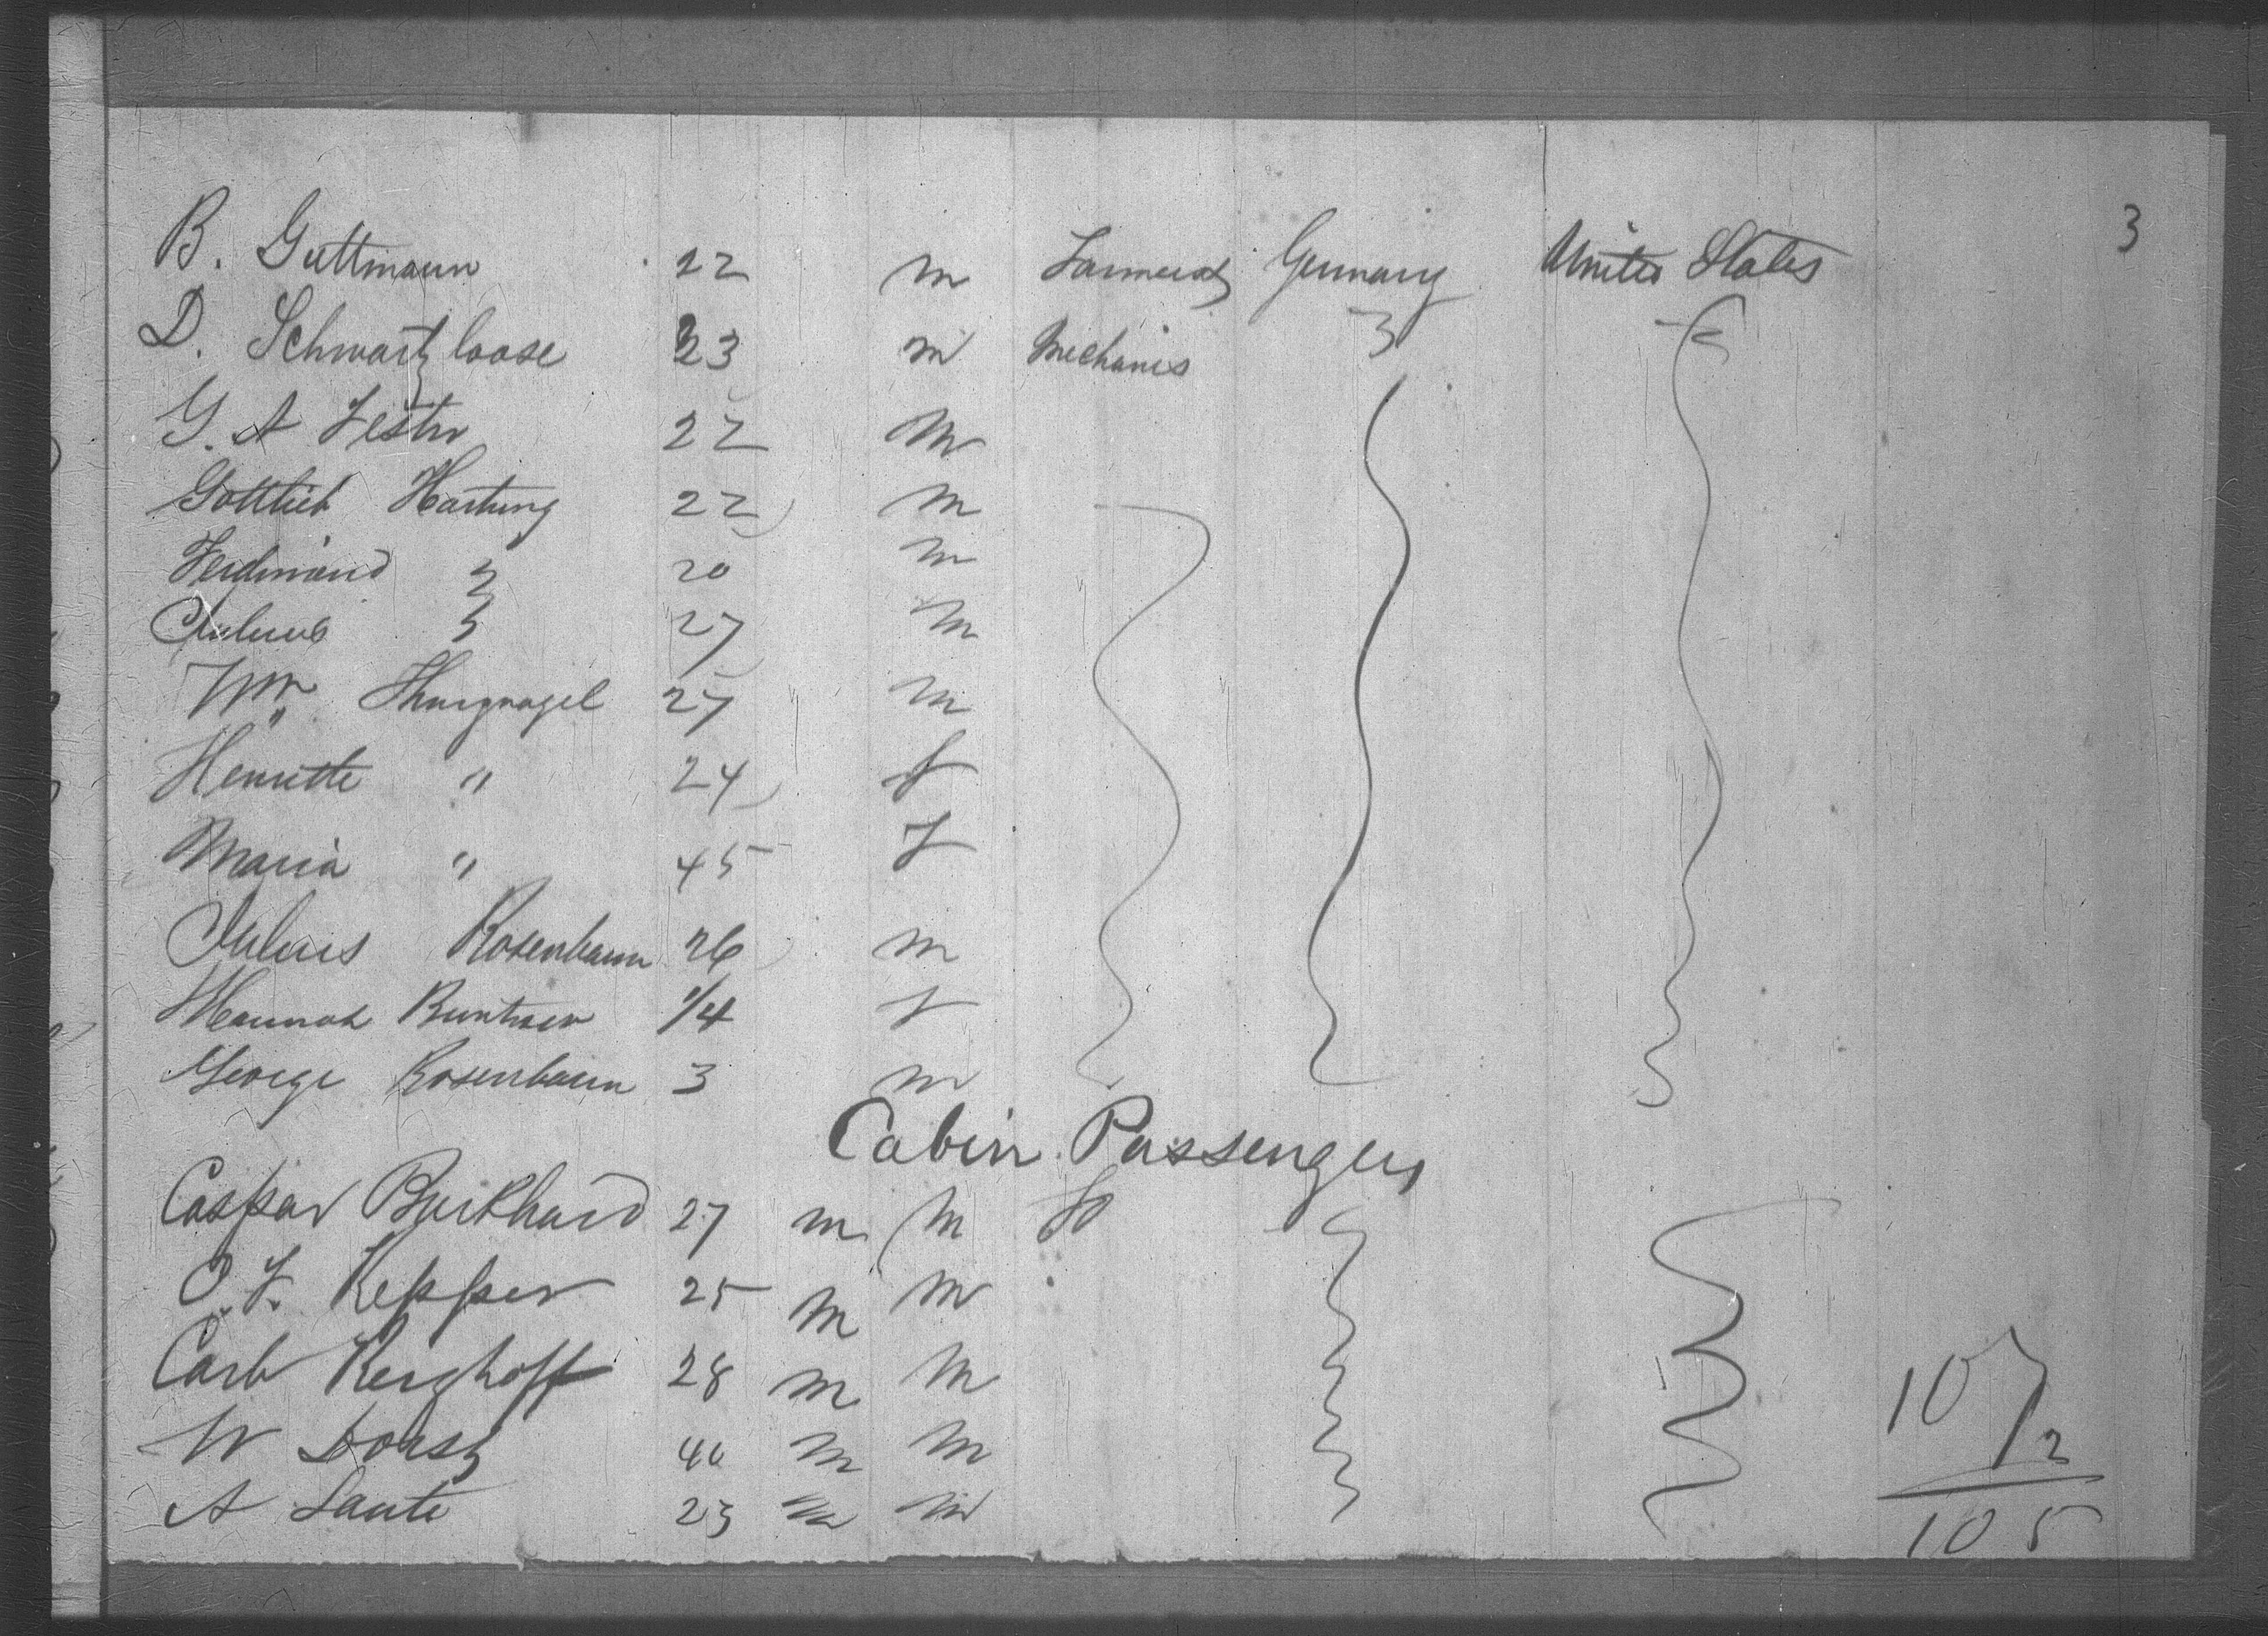 3
B. Guttmann 22 m Farmer Germany United States
D. Schwartzloose 23 m Mechanis "
G. A Fester 22 m
Gottlieb Hartung 22 m
Ferdinand " 20 m
Julius " 27 m
Wm 27 m
Henritte " 24 f
Maria " 45 f
Julius Rosenbaum 26 m
Hannah 1/4 f
George Rosenbaum 3 m
Cabin Passengers
Caspar Burkhard 27 m m
O. F. Kepper 25 m m
Carl Kerghoff 28 m m
W 40 m m
A Laute 23 m m
107
2
105